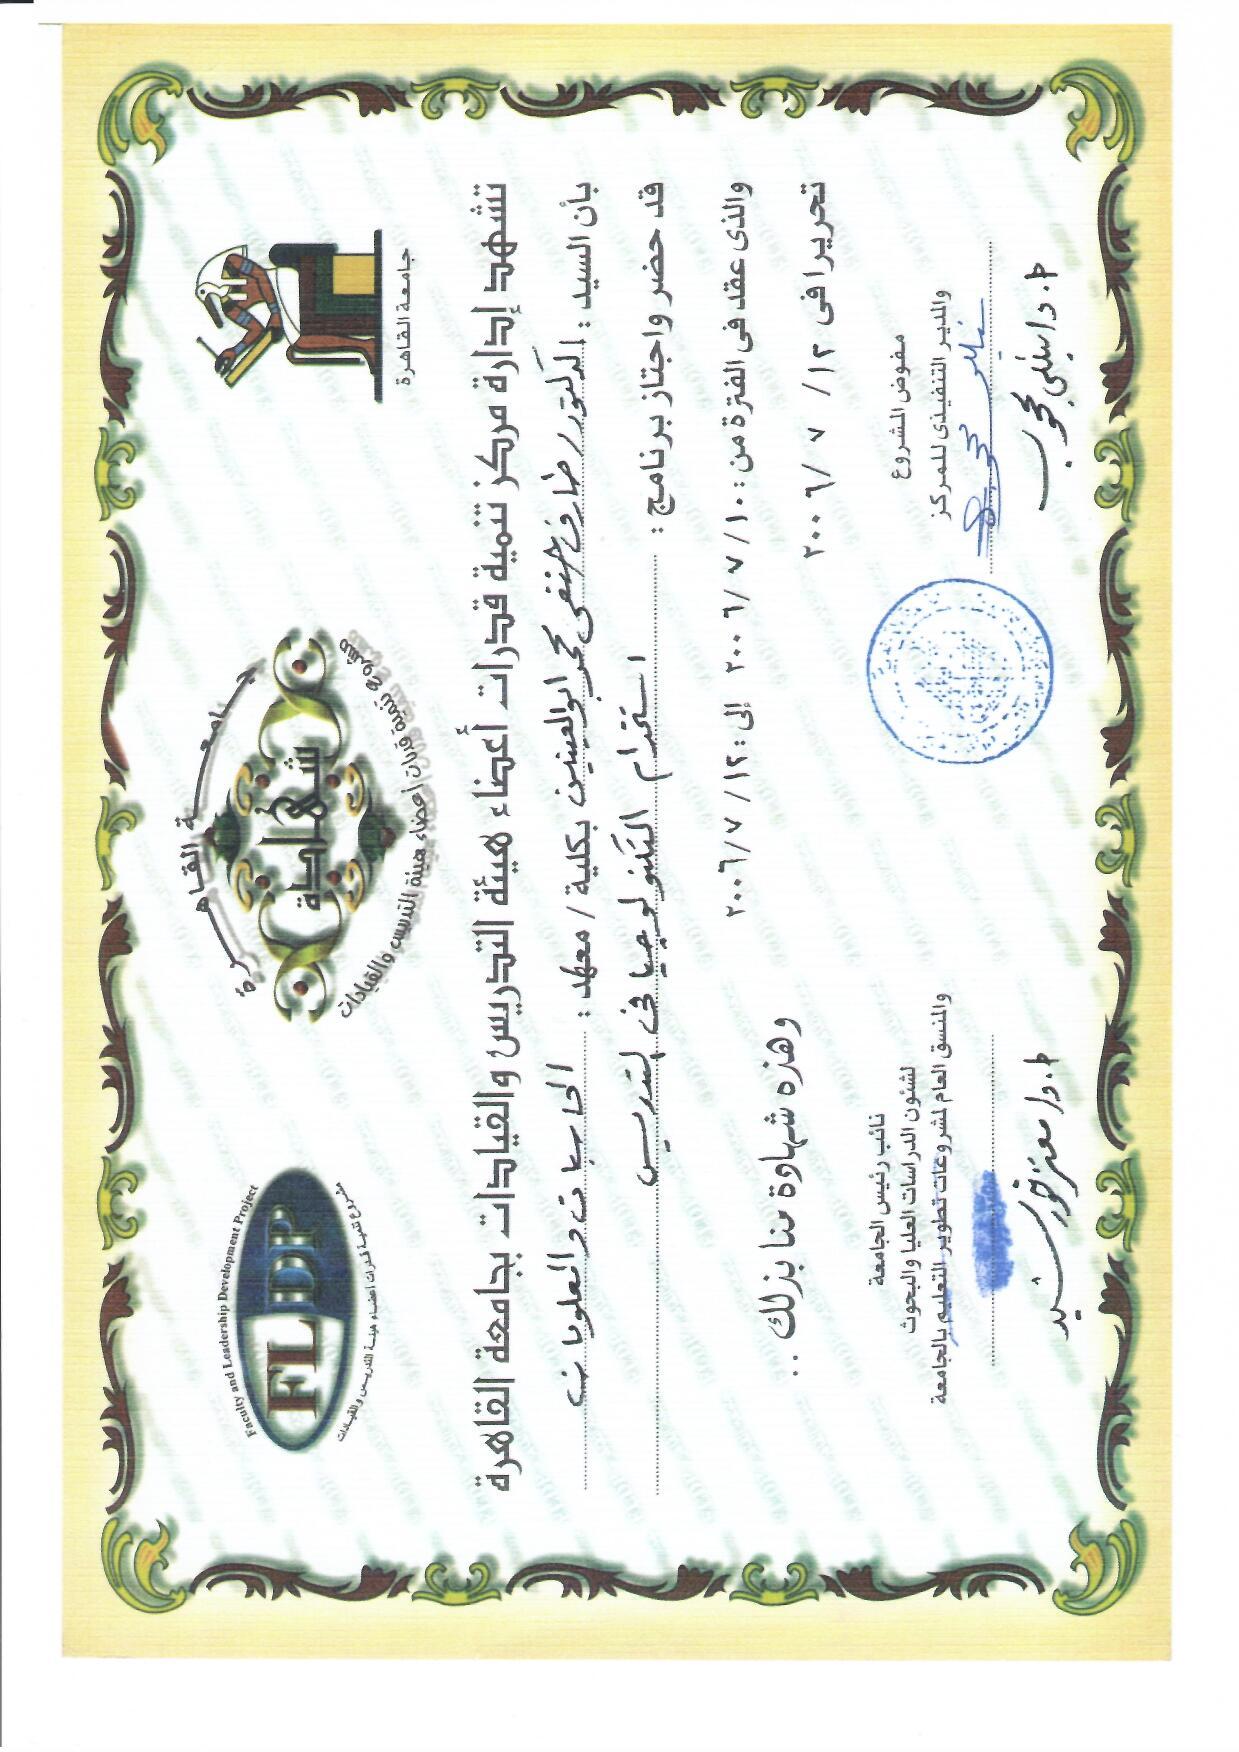 جامعة القاهرة
جامعة القاهرة
شهادة
مشروع تنمية قدرات أعضاء هيئة التدريس والقيادات
Faculty and Leadership Development Project
FLDP
مشروع تنمية قدرات أعضاء هيئة التدريس والقيادات
تشهد إدارة مركز تنمية قدرات أعضاء هيئة التدريس والقيادات بجامعة القاهرة
بأن السيد : الدكتور طارق حنفى محمد ابو العينين بكلية / معهد : الحاسبات والمعلومات
قد حضر واجتاز برنامج : استخدام التكنولوجيا فى التدريس
والذى عقد فى الفترة من : ١٠/ ٧ /٢٠٠٦ إلى : ١٢/ ٧ /٢٠٠٦
تحريرا فى ١٢/ ٧ /٢٠٠٦ وهذه شهادة منا بذلك ..
مفوض المشروع
والمدير التنفيذى للمركز
نائب رئيس الجامعة
لشئون الدراسات العليا والبحوث
والمنسق العام لمشروعات تطوير التعليم بالجامعة
ا.د/ معتز خورشيد